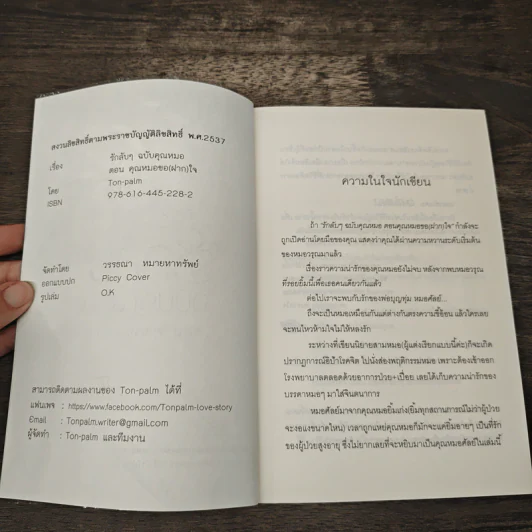 สงวนลิขสิทธิ์ตามพระราชบัญญัติลิขสิทธิ์ พ.ศ.2537
เรื่อง รักลับๆ ฉบับคุณหมอ
ตอน คุณหมอขอ(ฝาก)ใจ
โดย Ton-palm
ISBN 978-616-445-228-2
จัดทำโดย วรรธณา หมายหาทรัพย์
ออกแบบปก Piccy Cover
รูปเล่ม O.K
สามารถติดตามผลงานของ Ton-palm ได้ที่
แฟนเพจ : https://www.facebook.com/Tonpalm-love-story
Email : Tonpalm.writer@gmail.com
ผู้จัดทำ : Ton-palm และทีมงาน
ความในใจนักเขียน
ถ้า 'รักลับๆ ฉบับคุณหมอ ตอนคุณหมอขอ(ฝาก)ใจ' กำลังจะ
ถูกเปิดอ่านโดยมือของคุณ แสดงว่าคุณได้ผ่านความหวานระดับเริ่มต้น
ของหมอวรุณมาแล้ว
เรื่องราวความน่ารักของคุณหมอยังไม่จบ หลังจากพบหมอวรุณ
ที่รอยยิ้มนี้เพื่อเธอคนเดียวกันแล้ว
ต่อไปเราจะพบกับรักของพ่อบุญทุ่ม หมอศัลย์...
ถึงจะเป็นหมอเหมือนกันแต่ต่างกันตรงความขี้อ้อน แล้วใครเลย
จะทนไหวห้ามใจไม่ให้หลงรัก
ระหว่างที่เขียนนิยายสามหมอ(ผู้แต่งเรียกแบบนี้ค่ะ)ก็จะเกิด
ปรากฏการณ์อีป้าโรคจิต ไปนั่งส่องพฤติกรรมหมอ เพราะต้องเข้าออก
โรงพยาบาลตลอดด้วยอาการป่วย+เปื่อย เลยได้เก็บความน่ารักของ
บรรดาหมอๆ มาใส่จินตนาการ
หมอศัลย์มาจากคุณหมอยิ้มเก่ง(ยิ้มทุกสถานการณ์ไม่ว่าผู้ป่วย
จะงอแงขนาดไหน) เวลาถูกแหย่คุณหมอก็มักจะแค่ยิ้มอายๆ เป็นที่รัก
ของผู้ป่วยสูงอายุ ซึ่งไม่ยากเลยที่จะหยิบมาเป็นคุณหมอศัลย์ในเล่มนี้